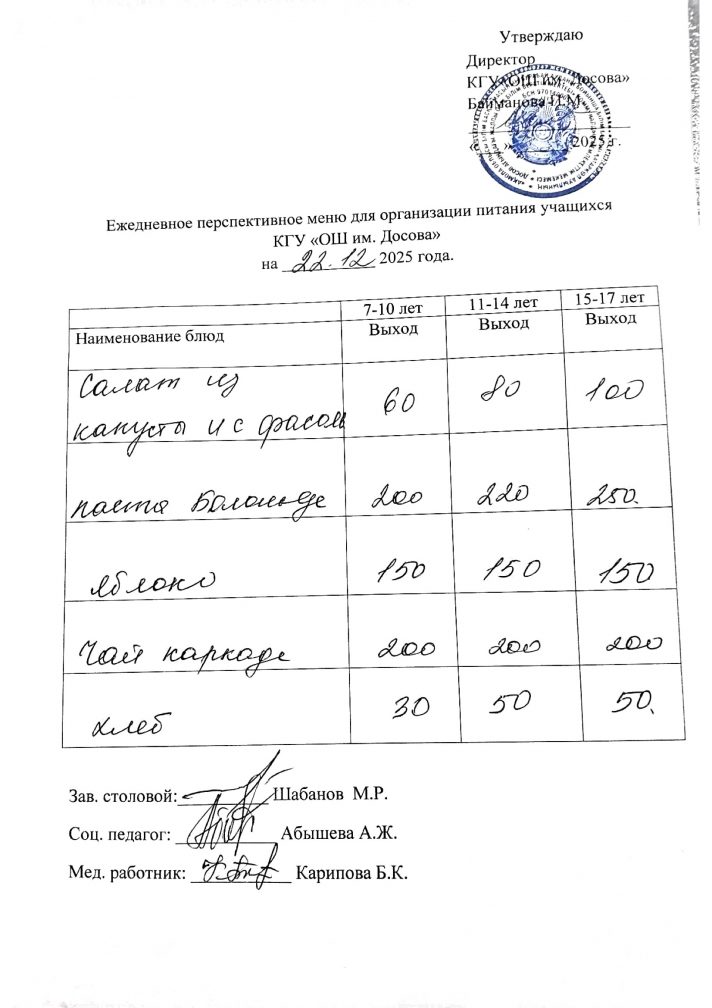 Утверждаю
Директор
КГУ «ОШ им. Досова»
Байманова П.М.
« » 2025 г.
Ежедневное перспективное меню для организации питания учащихся
КГУ «ОШ им. Досова»
на 22.12 2025 года.
7-10 лет 11-14 лет 15-17 лет
Наименование блюд Выход Выход Выход
Салат из
капусты и с фасоль 60 80 100
паста Болоньезе 200 220 250.
яблоко 150 150 150
Чай каркаде 200 200 200
хлеб 30 50 50.
Зав. столовой: Шабанов М.Р.
Соц. педагог: Абышева А.Ж.
Мед. работник: Карипова Б.К.